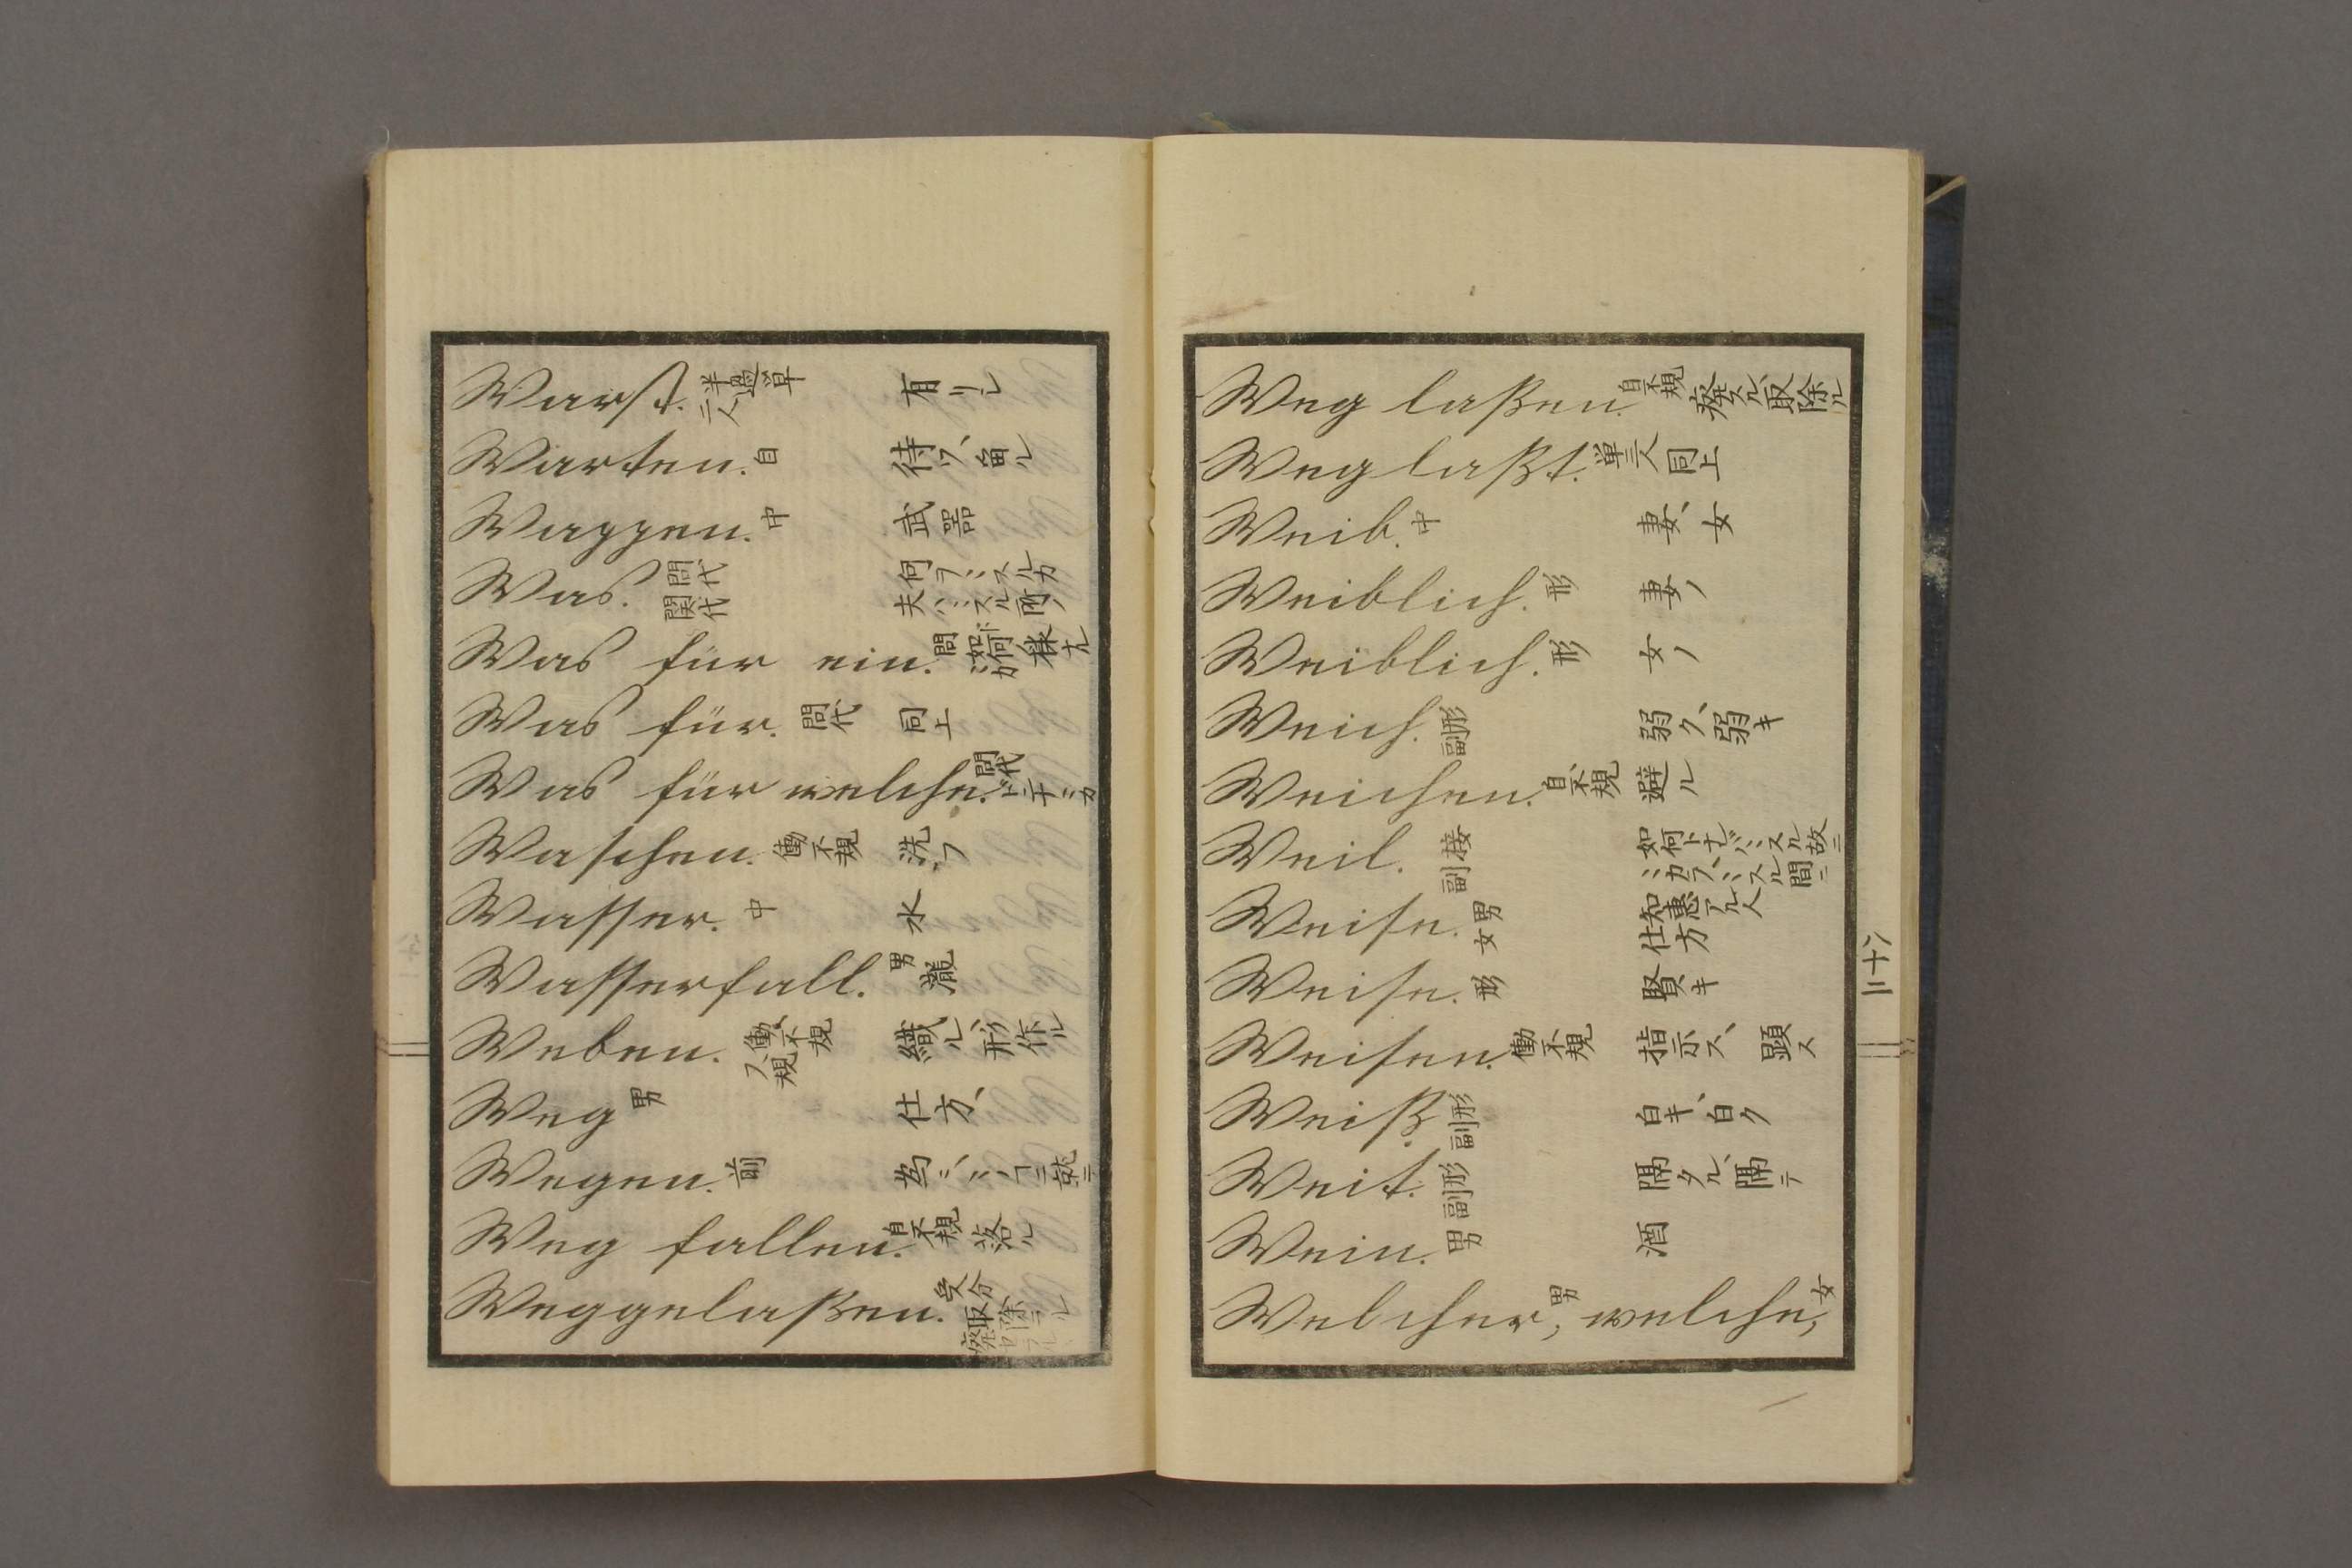 Warst. 半過単二人 有リシ
Warten. 自 待ツ、留ル
Wappen. 中 武器
Was. 問代 関代 何ヲ〻スルカ 夫ハ〻スル所ノ
Was für ein. 問 如何 様ナル
Was für. 問代 同上
Was für welche. 問代
Waschen. 働不規 洗フ
Wasser. 中 水
Wasserfall. 男 瀧
Weben. 働不規、又規 織ル、形作ル
Weg 男 仕方、
Wegen. 前 為ニ 就テ
Weg fallen. 自不規 落ル
Weggelaßen. 受分 取除 廃
Weg laßen. 自不規 廃スル、取除ル
Weg laßt. 単三人 同上
Weib. 中 妻、女
Weiblich. 形 妻ノ
Weiblich. 形 女ノ
Weich. 副形 弱ク、弱キ
Weichen. 自不規 避ル
Weil. 接 副 如何トナレバ〻スル故ニ 〻スル間ニ
Weise. 男 女 知惠アル人 仕方
Weise. 形 賢キ
Weisen. 働不規 指示ス、顕ス
Weiß. 副形 白キ、白ク
Weit. 副形 隔タル、隔テ
Wein. 男 酒
Welcher, 男 welche, 女
二十八